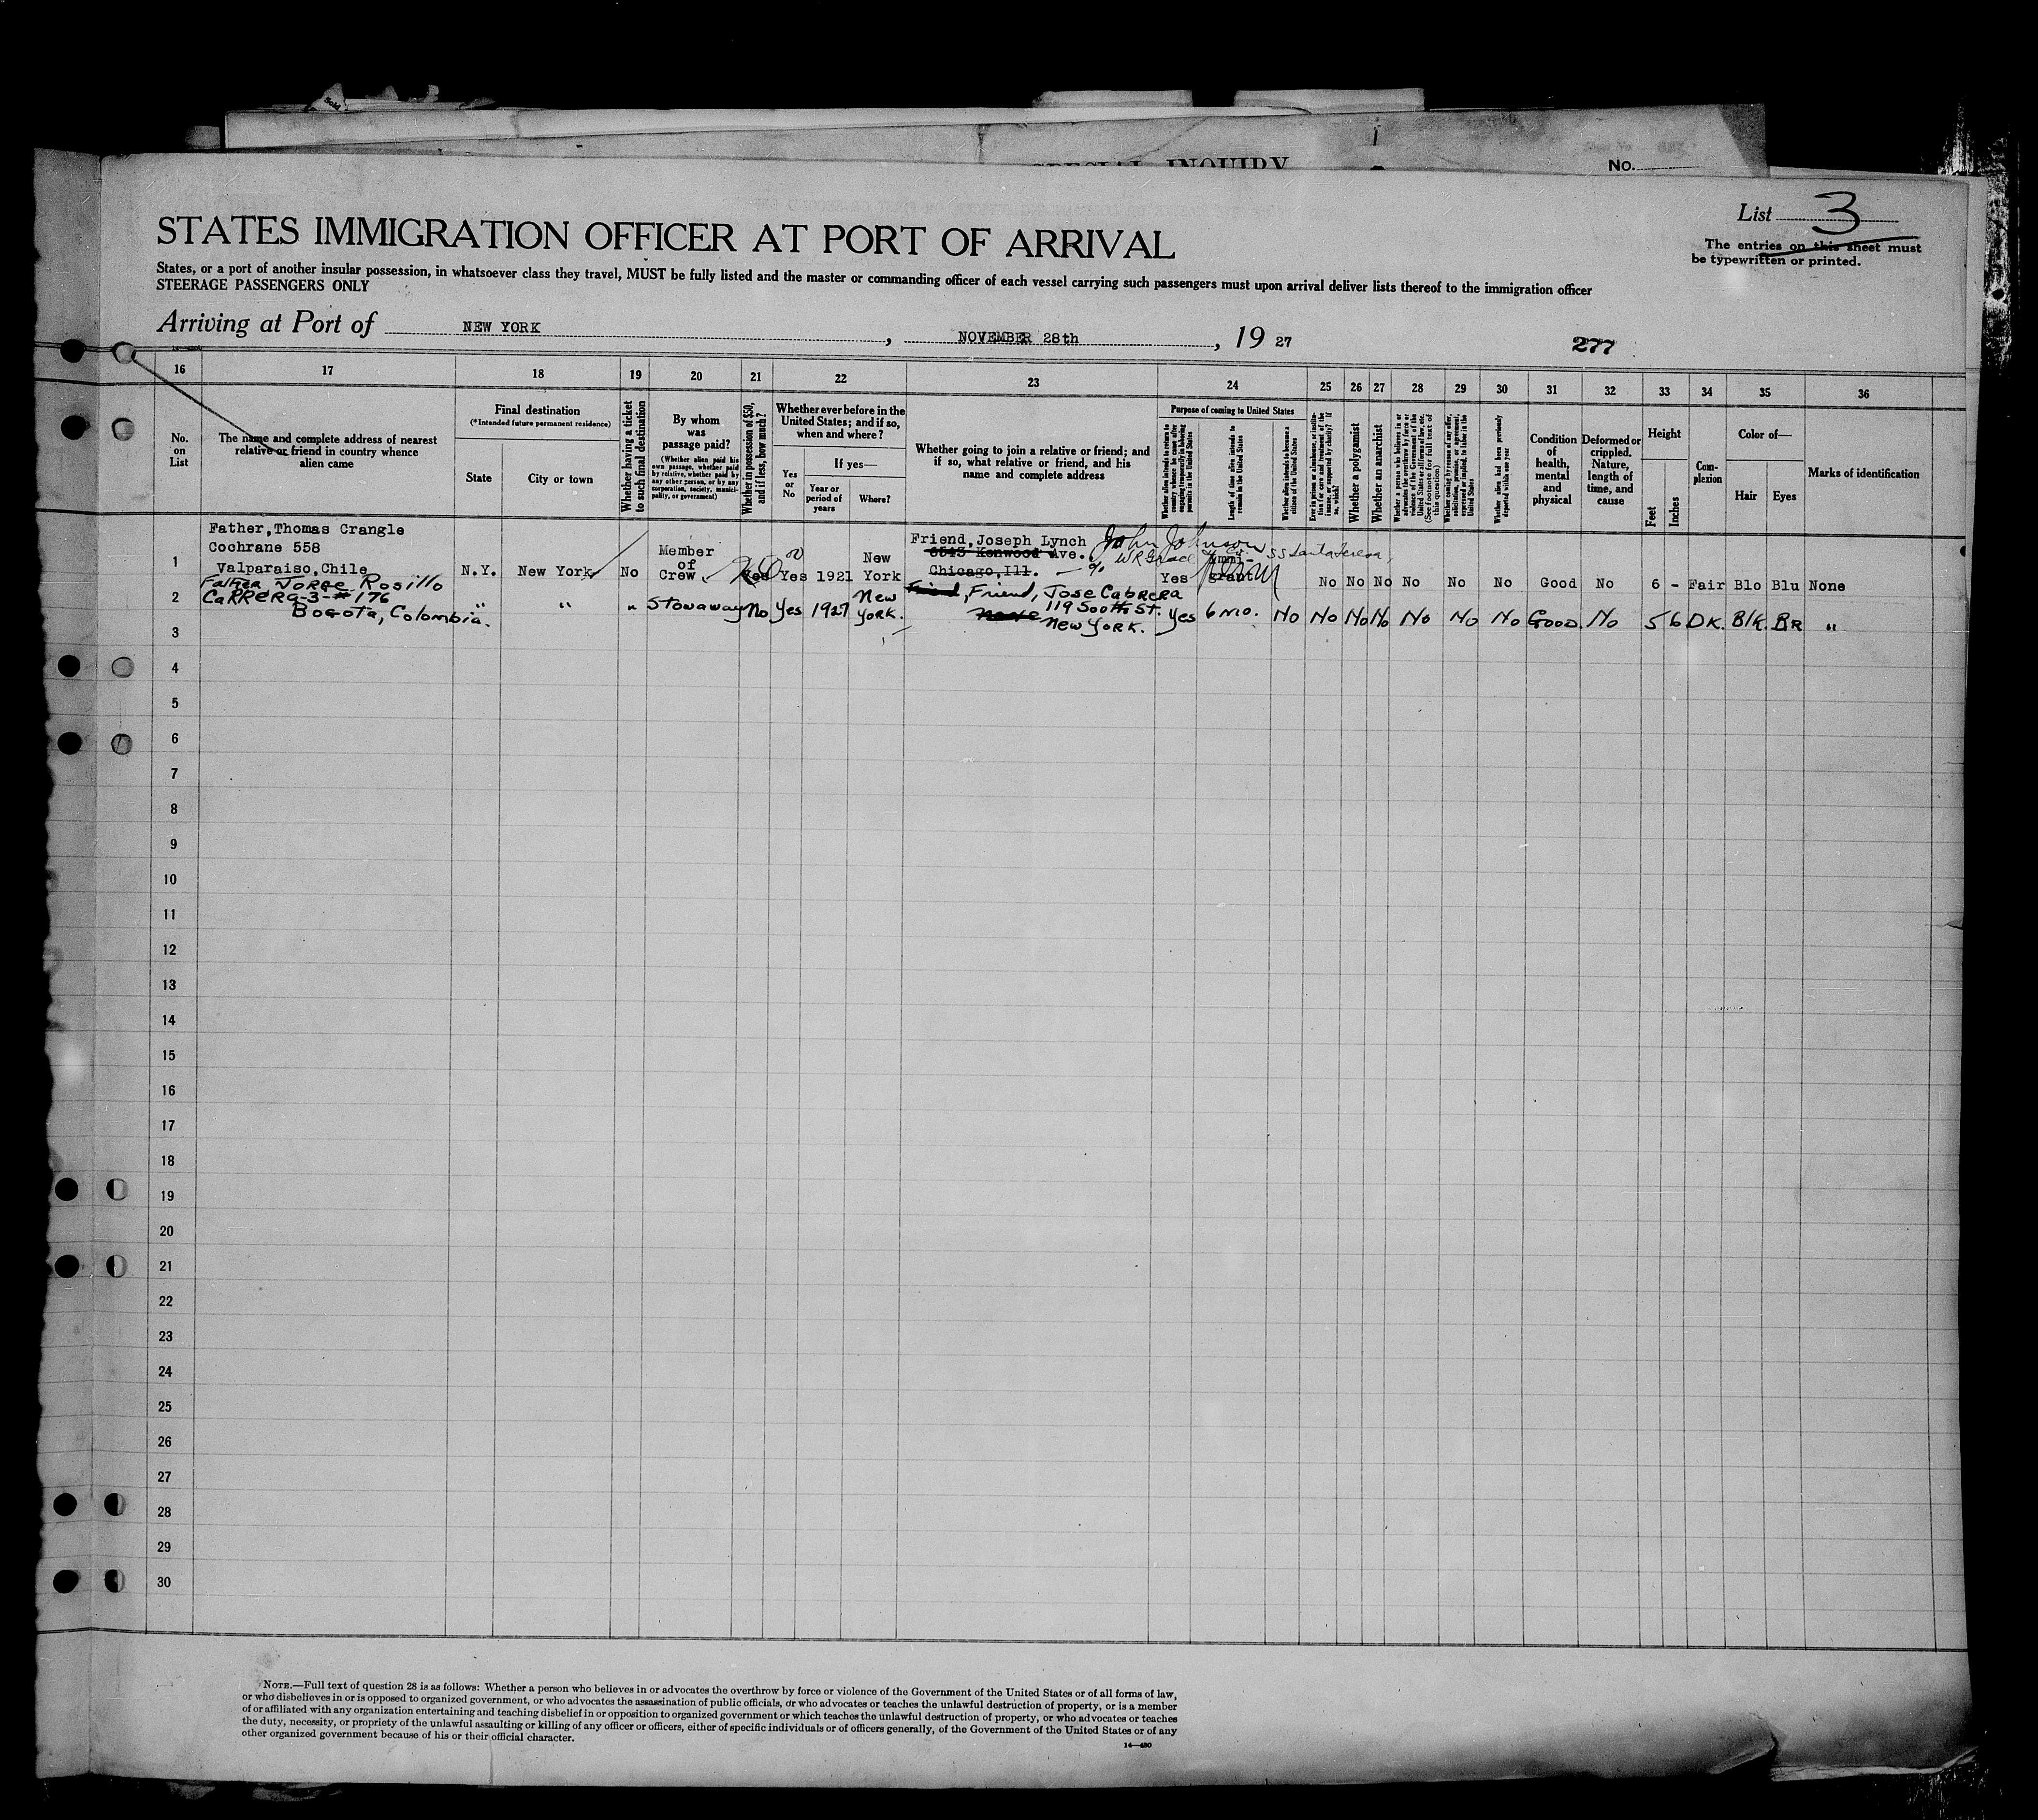 SPECIAL INQUIRY
No.
List 3
The entries on this sheet must
be typewritten or printed.
STATES IMMIGRATION OFFICER AT PORT OF ARRIVAL
States, or a port of another insular possession, in whatsoever class they travel, MUST be fully listed and the master or commanding officer of each vessel carrying such passengers must upon arrival deliver lists thereof to the immigration officer
STEERAGE PASSENGERS ONLY
Arriving at Port of NEW YORK, NOVEMBER 28th, 19 27
277
16 17 18 19 20 21 22 23 24 25 26 27 28 29 30 31 32 33 34 35 36
No. on List
The name and complete address of nearest relative or friend in country whence alien came
Final destination
(*Intended future permanent residence)
State
City or town
Whether having a ticket to such final destination
By whom was passage paid?
(Whether alien paid his own passage, whether paid by relative, whether paid by any other person, or by any corporation, society, municipality, or government)
Whether in possession of $50, and if less, how much?
Whether ever before in the United States; and if so, when and where?
Yes or No
If yes—
Year or period of years
Where?
Whether going to join a relative or friend; and if so, what relative or friend, and his name and complete address
Purpose of coming to United States
Whether alien intends to return to country whence he came after engaging temporarily in laboring pursuits in the United States
Length of time alien intends to remain in the United States
Whether alien intends to become a citizen of the United States
Ever in prison or almshouse, or institution for care and treatment of the insane, or supported by charity? If so, which?
Whether a polygamist
Whether an anarchist
Whether a person who believes in or advocates the overthrow by force or violence of the Government of the United States or all forms of law, etc. (See footnote for full text of this question)
Whether coming by reason of any offer, solicitation, promise, or agreement, expressed or implied, to labor in the United States
Whether alien had been previously deported within one year
Condition of health, mental and physical
Deformed or crippled. Nature, length of time, and cause
Height
Feet
Inches
Complexion
Color of—
Hair
Eyes
Marks of identification
Father, Thomas Crangle
Cochrane 558
Valparaiso, Chile
1 N.Y. New York No Member of Crew Yes Yes 1921 New York
Friend, Joseph Lynch
6543 Kenwood Ave.
Chicago, Ill.
John Johnson
% W R Grace
SS Santa Teresa
Yes Immigrant No No No No No No Good No 6 - Fair Blo Blu None
Father Jorge Rosillo
2 Carrera-3-#176
Bogota, Colombia.
" " " Stowaway No Yes 1927 New York.
Friend, Friend, Jose Cabrera
None 119 South St.
New York.
Yes 6 mo. No No No No No No No Good No 5 6 DK. Blk. BR "
3
4
5
6
7
8
9
10
11
12
13
14
15
16
17
18
19
20
21
22
23
24
25
26
27
28
29
30
NOTE.—Full text of question 28 is as follows: Whether a person who believes in or advocates the overthrow by force or violence of the Government of the United States or of all forms of law,
or who disbelieves in or is opposed to organized government, or who advocates the assassination of public officials, or who advocates or teaches the unlawful destruction of property, or is a member
of or affiliated with any organization entertaining and teaching disbelief in or opposition to organized government or which teaches the unlawful destruction of property, or who advocates or teaches
the duty, necessity, or propriety of the unlawful assaulting or killing of any officer or officers, either of specific individuals or of officers generally, of the Government of the United States or of any
other organized government because of his or their official character.
14—430